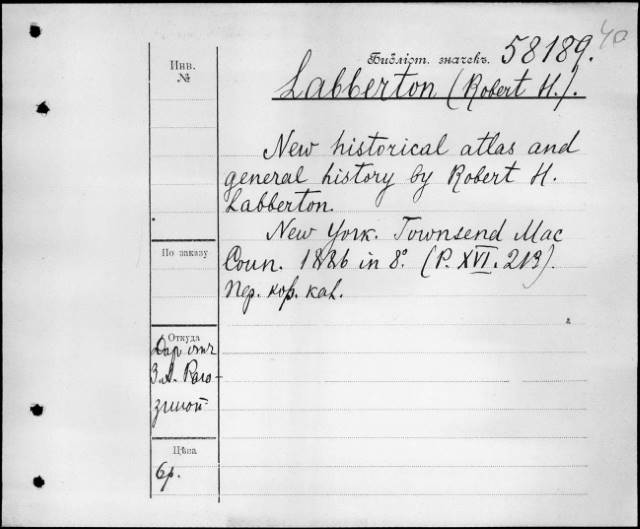 40
Библіот. значекъ. 58189.
Инв.
№
Labberton (Robert H.).
New historical atlas and
general history by Robert H.
Labberton.
New York. Townsend Mac
Coun. 1886 in 8°. (P. XVI. 213).
По заказу
Пер. кор. кал.
Откуда
Дар отъ
З. А. Раго-
зиной
Цѣна
6р.